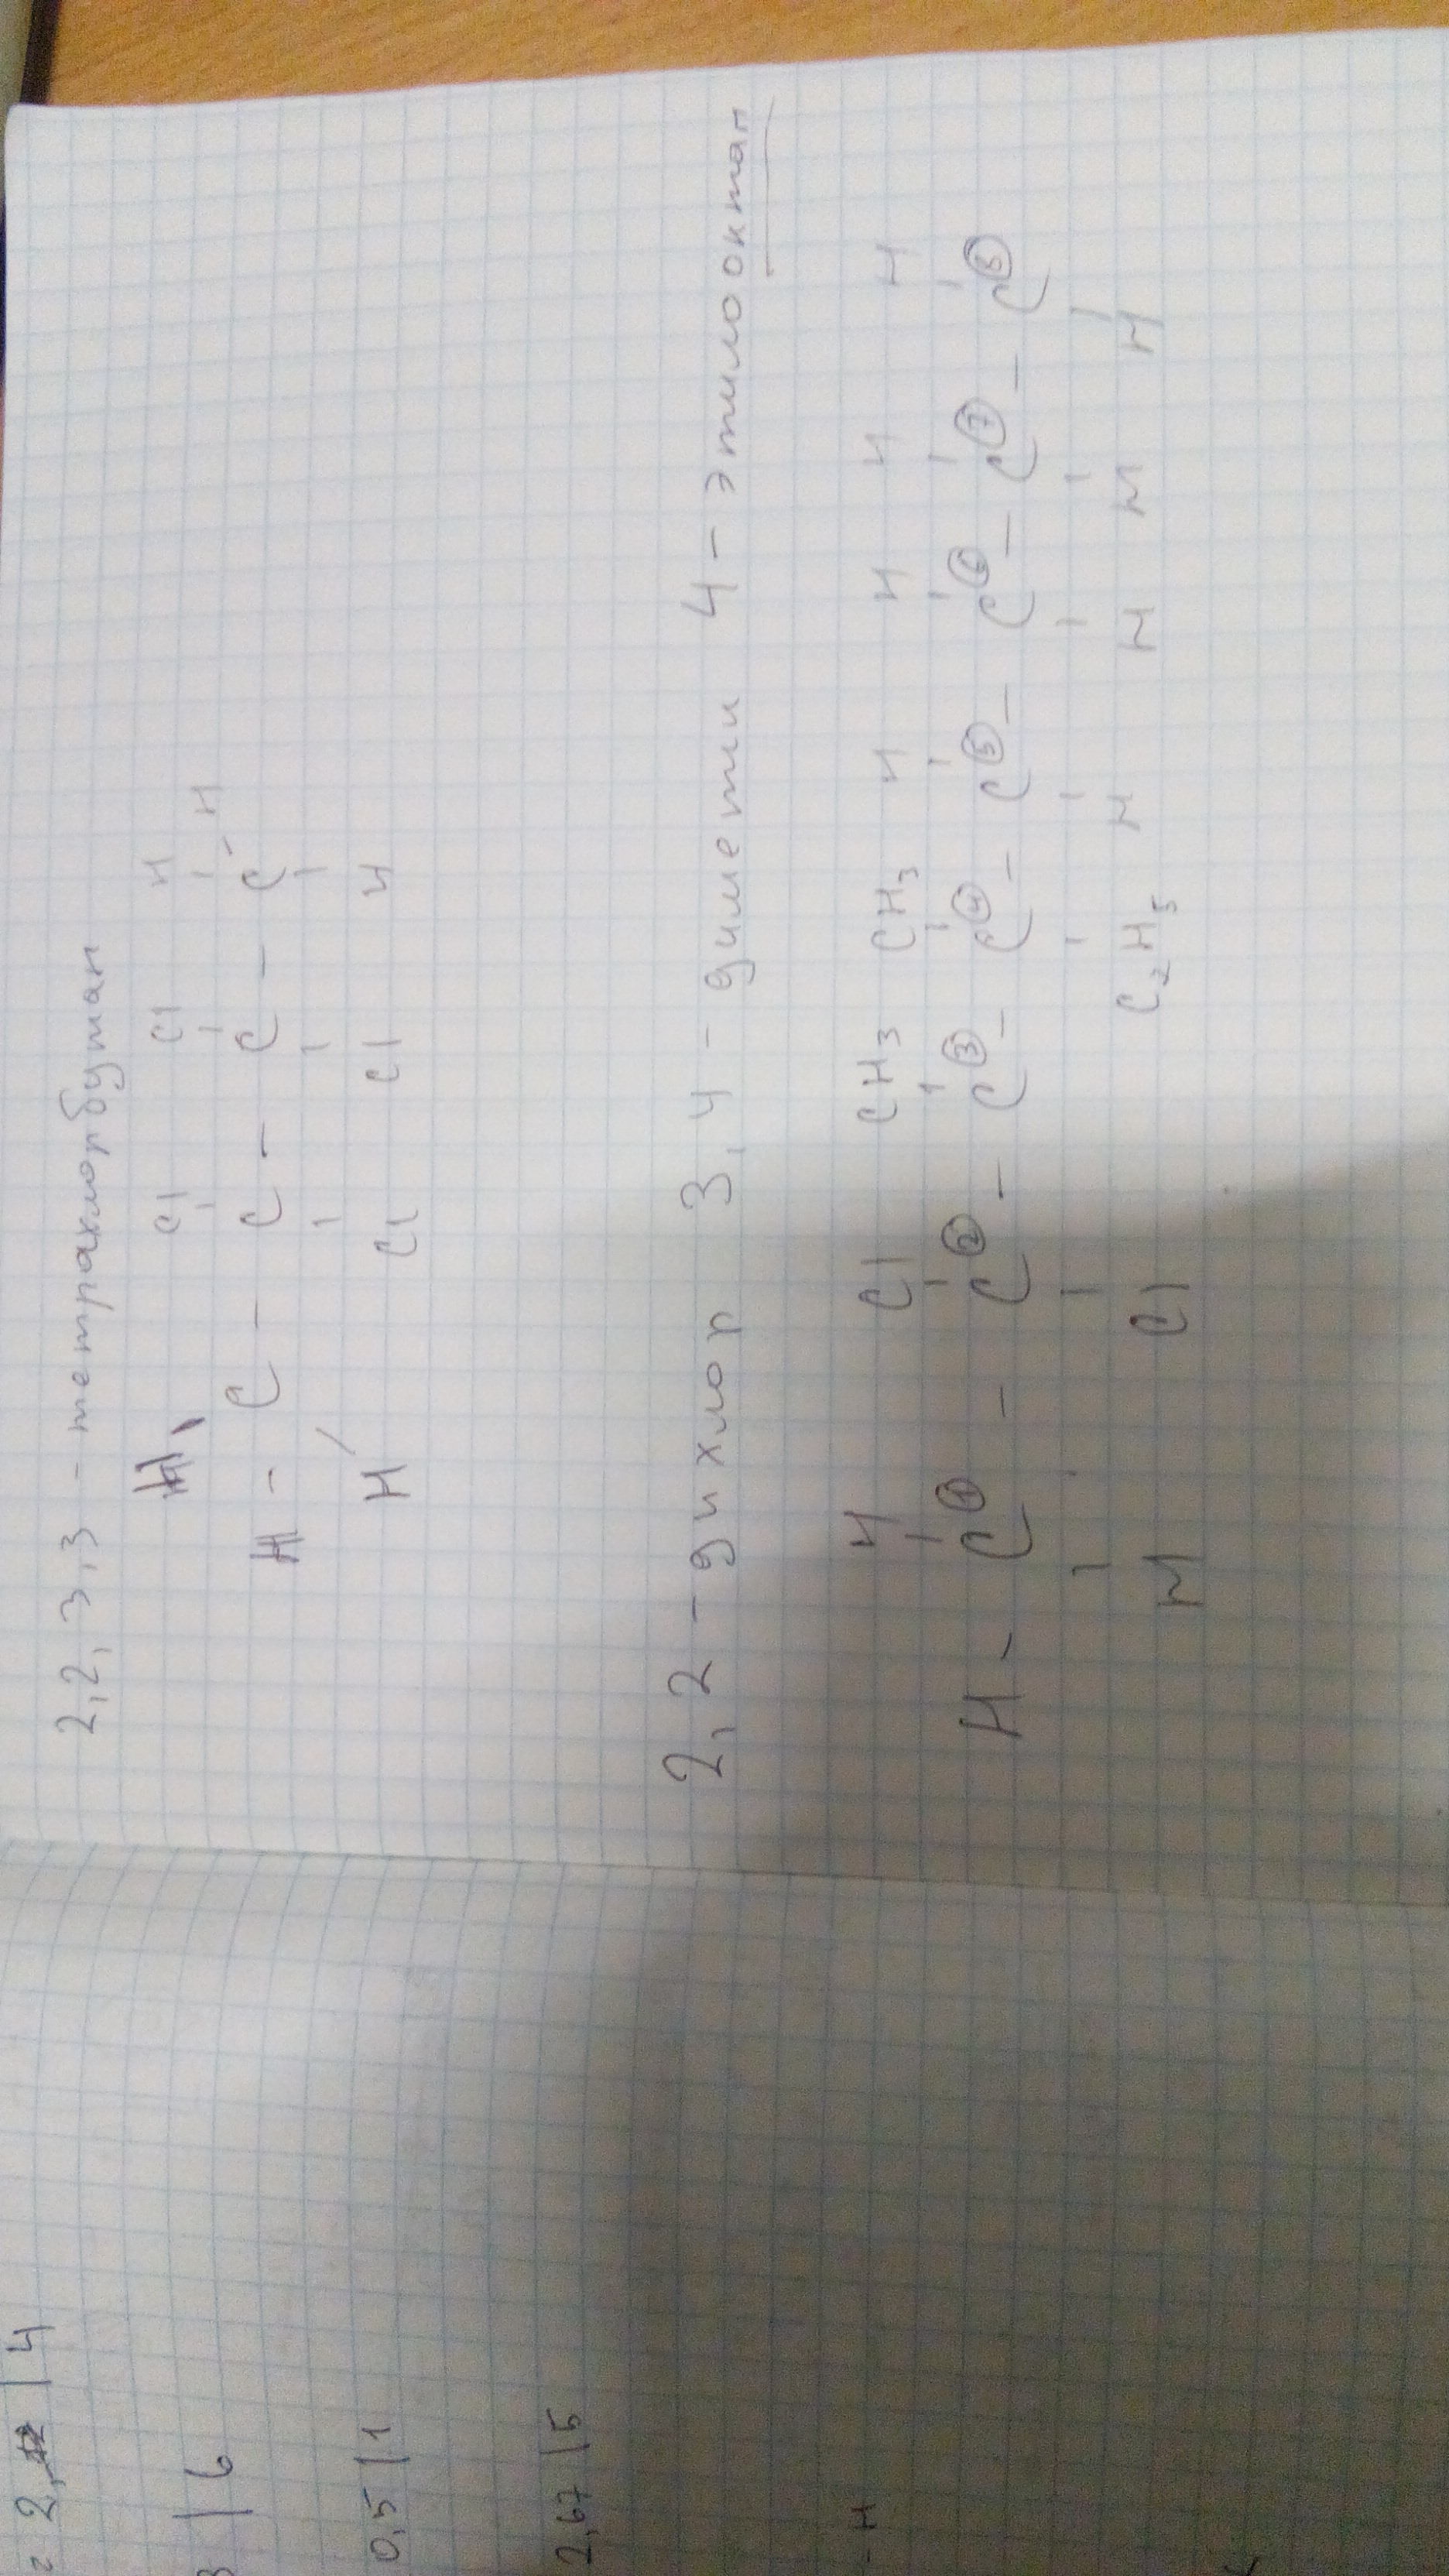 2,2,3,3 - тетрахлорбутан
H Cl Cl H
H - C - C - C - C - H
H Cl Cl H
2,2 - дихлор 3,4 - диметил 4 - этилоктан
H Cl CH3 CH3 H H H H
H - C① - C② - C③ - C④ - C⑤ - C⑥ - C⑦ - C⑧
H Cl C2H5 H H H H
= 2, | 4
3 | 6
0,5 | 1
2,67 | 5
- H